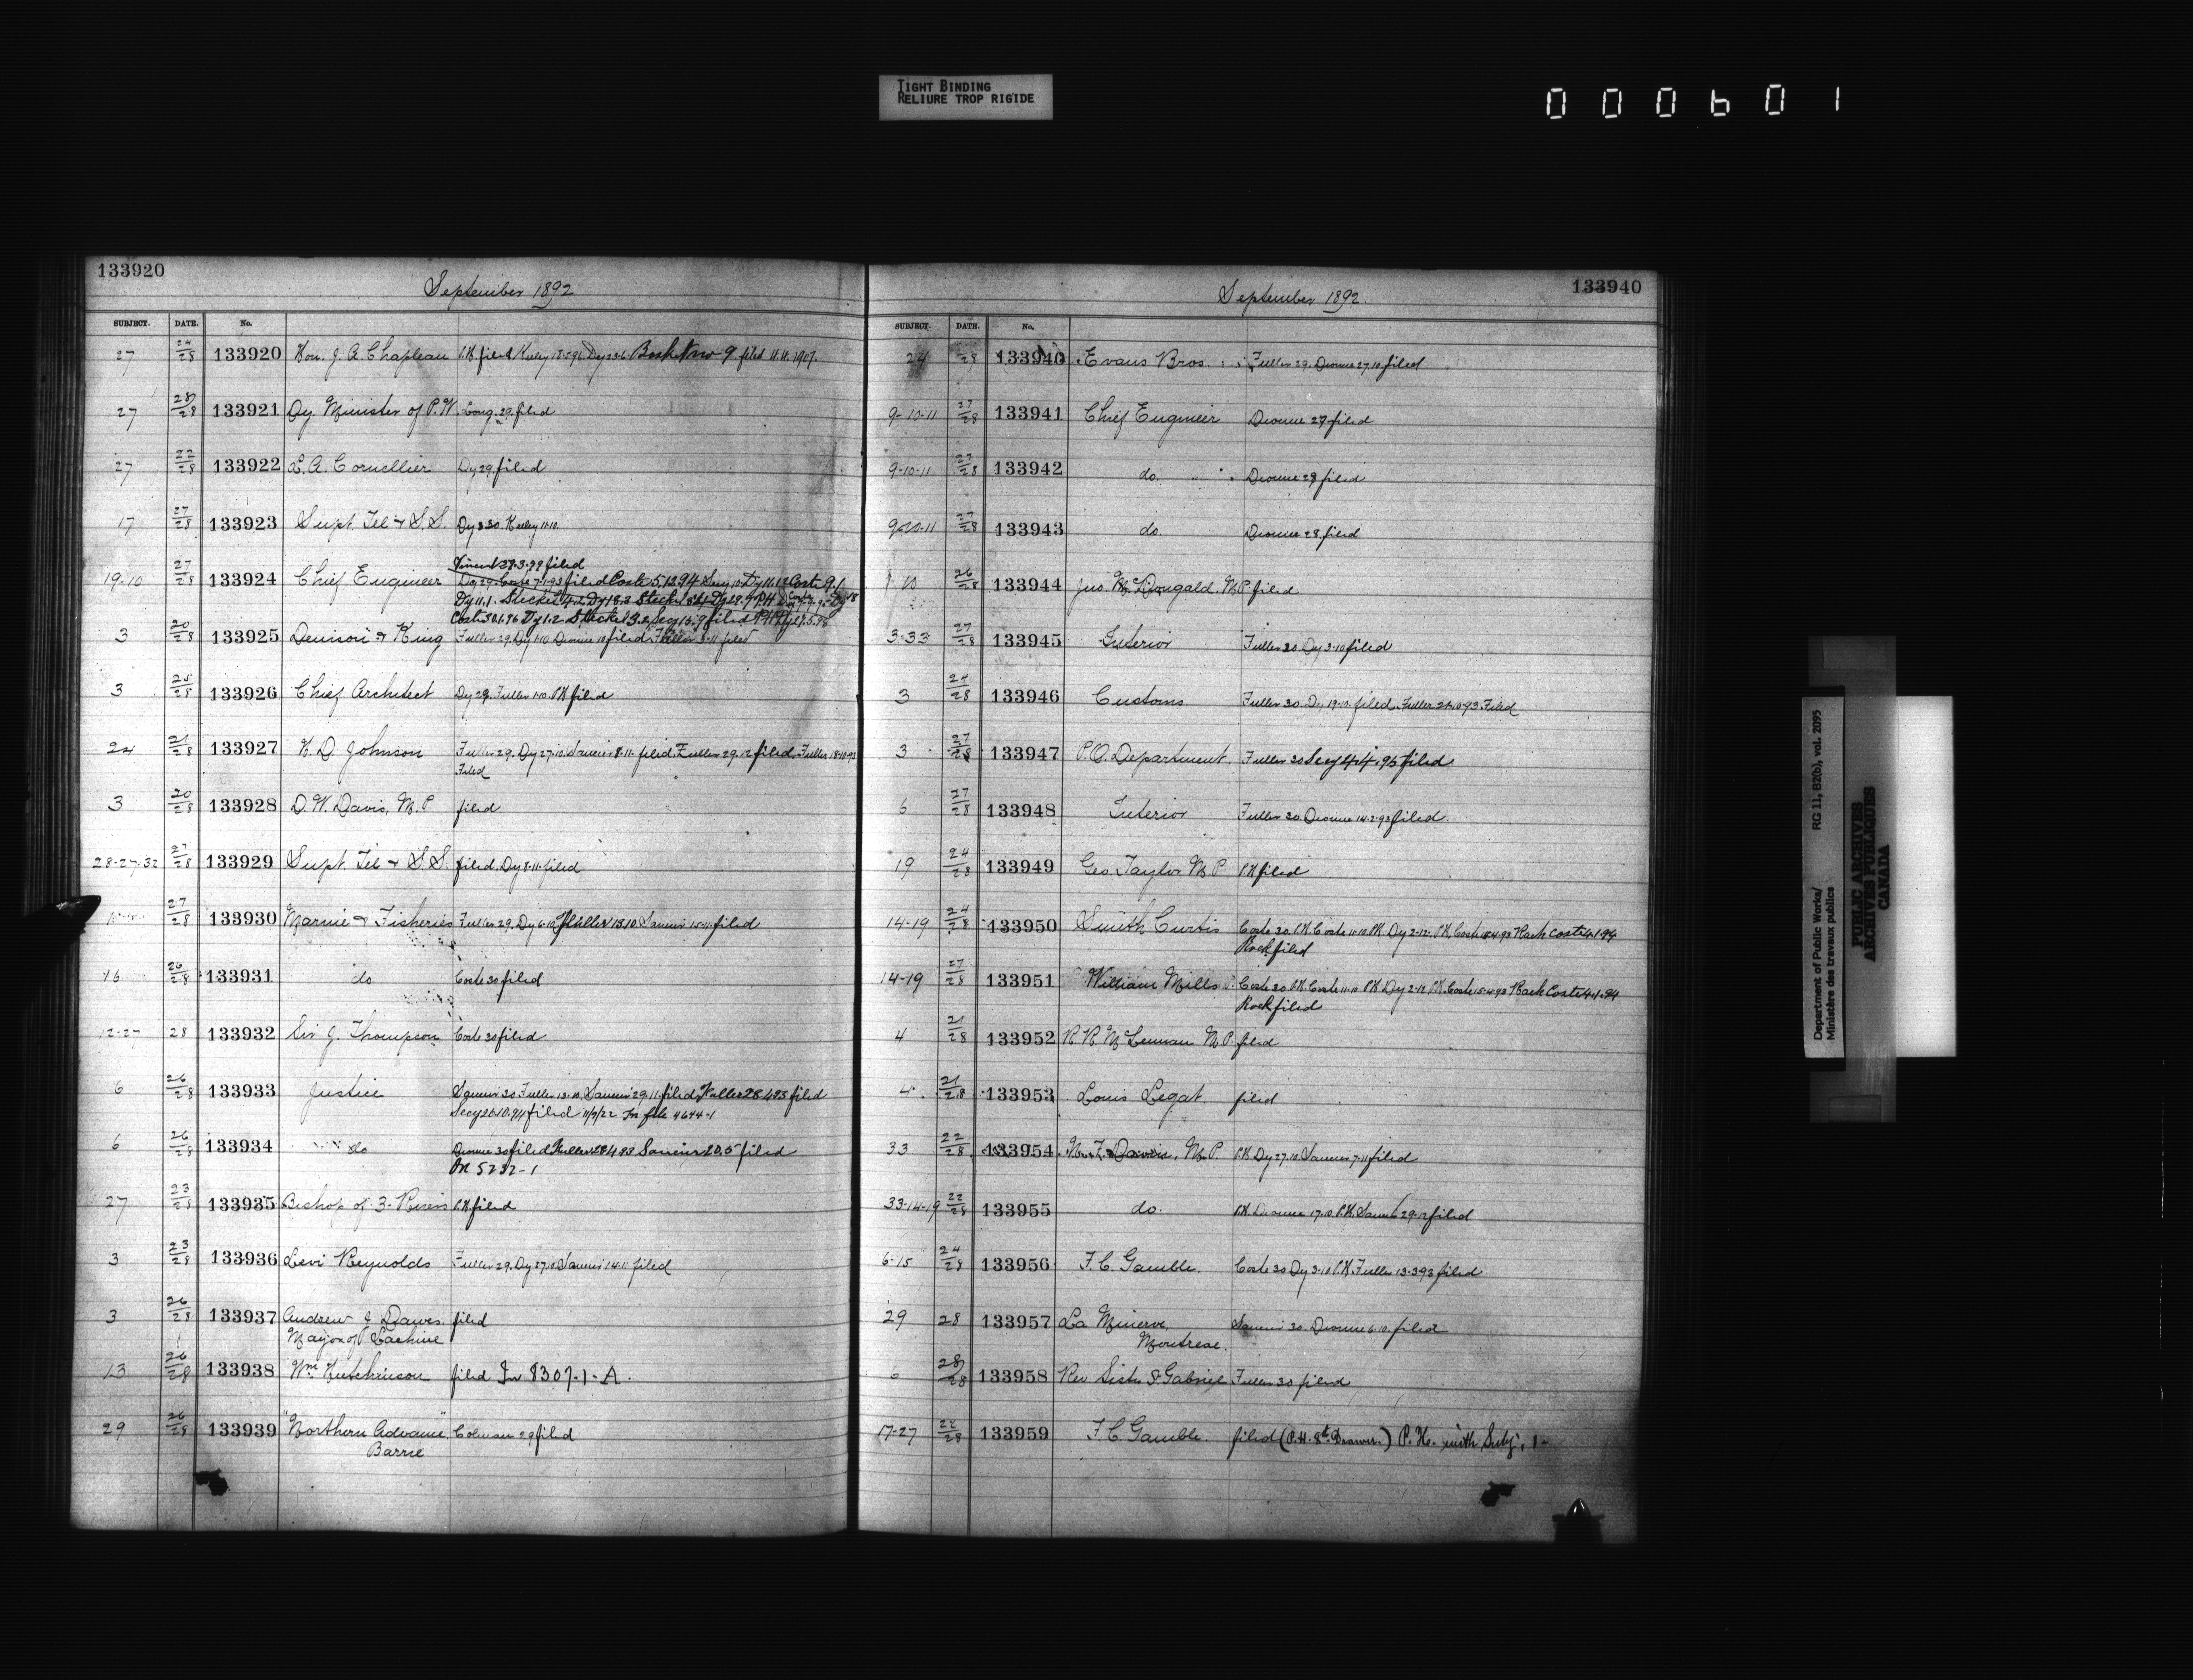 TIGHT BINDING
RELIURE TROP RIGIDE
000601
133920
September 1892
SUBJECT. DATE. No.
27 24/28 133920 Hon. J. A. Chapleau P.H. filed Keeley filed 11.11.1907.
27 28/28 133921 Dy. Minister of P.W. Long. 29. filed
27 22/28 133922 L. A. Cornellier Dy 29. filed
17 27/28 133923 Supt. Tel & S.S. Dy 30. Keeley 11.10.
Vincent 27.3.99 filed
19-10 27/28 133924 Chief Engineer Dy 29. Coste 7.1.93 filed Coste 5.12.94 Secy 10. Dy 11.12 Coste 9.1
Dy 11.1. Steckel 4.2 Dy 18.3 Steckel
Coste 30.1.96 Dy 1.2. Steckel 3.2. Secy 15.9 filed
3 20/28 133925 Denison & King Fuller 29. Dy 1.10. Dionne filed. Fuller 3.11 filed
3 25/28 133926 Chief Architect Dy 29. Fuller 1.10. P.H. filed
24 21/28 133927 H. D. Johnson Fuller 29. Dy 27.10. Saucier 8.11. filed Fuller 29.12 filed. Fuller 18.10.93
Filed
3 20/28 133928 D. W. Davis, M.P. filed
28-27-32 27/28 133929 Supt. Tel & S.S. filed. Dy 8.11. filed
27/28 133930 Marine & Fisheries Fuller 29. Dy 6.10. Fuller 13.10. Saucier 15.11. filed
16 26/28 133931 do Coste 30 filed
12-27 28 133932 Sir J. Thompson Coste 30 filed
6 26/28 133933 Justice Saucier 30. Fuller 13.10. Saucier 29.11. filed. Fuller 28.4.93 filed
Secy filed 11/9/22 In file 4644-1
6 26/28 133934 do Dionne 30 filed Fuller 28.4.93 Saucier 20.5 filed
On 5232-1
27 23/28 133935 Bishop of 3-Rivers P.H. filed
3 23/28 133936 Levi Reynolds Fuller 29. Dy 27.10. Saucier 14.11 filed
3 26/28 133937 Andrew J. Dawes. filed
Mayor of Lachine
13 26/28 133938 Wm. Hutchinson filed In 8307-1-A.
29 26/28 133939 "Northern Advance" Colman 29 filed
Barrie
133940
September 1892.
SUBJECT. DATE. No.
24 28 133940 Evans Bros. Fuller 29. Dionne 27.10 filed
9-10-11 27/28 133941 Chief Engineer Dionne 29 filed
9-10-11 27/28 133942 do. Dionne 29 filed
9-10-11 27/28 133943 do. Dionne 28 filed
9-10 26/28 133944 Jno. McDougald, M.P. filed
3-33 27/28 133945 Interior Fuller 30 Dy 3.10 filed
3 24/28 133946 Customs Fuller 30. Dy 19.10. filed. Fuller 93 Filed
3 27/28 133947 P.O. Department. Fuller 30 Secy 4.4.95 filed
6 27/28 133948 Interior Fuller 30. Dionne 14.2.93 filed.
19 24/28 133949 Geo. Taylor M.P. P.H. filed
14-19 24/28 133950 Smith Curtis Coste 30. P.H. Coste 11.10 P.H. Dy 2.12. P.H. Coste 15.4.93 Rack Coste 4.1.94
Rack filed
14-19 27/28 133951 William Mills Coste 30 P.H. Coste 11.10 P.H. Dy 2.12 P.H. Coste 15.4.93 Rack Coste 4.1.94
Rack filed
4 21/28 133952 R. R. McLennan M.P. filed
4. 21/28 133953 Louis Legat. filed
33 22/28 133954 N. F. Davin, M.P. P.H. Dy 27.10. Saucier 7.11 filed
33-14-19 22/28 133955 do. P.H. Dionne 17.10. P.H. Saucier 29.12 filed
6-15 24/28 133956 F. C. Gamble. Coste 30 Dy 3.10 P.H. Fuller 13.3.93 filed
29 28 133957 La Minerve, Saucier 30. Dionne 6.10. filed
Montreal.
6 28/28 133958 Rev Sister St. Gabriel Fuller 30 filed
17-27 22/28 133959 F. C. Gamble. filed (P.H. 8th Drawer.) P.H. with Subj. 1-
Department of Public Works/
Ministère des travaux publics
RG 11, B2(b), vol. 2095
PUBLIC ARCHIVES
ARCHIVES PUBLIQUES
CANADA